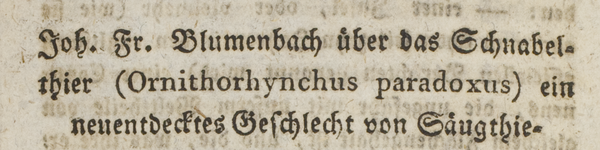 Joh. Fr. Blumenbach über das Schnabel-
thier (Ornithorhynchus paradoxus) ein
neuentdecktes Geschlecht von Säugthie-